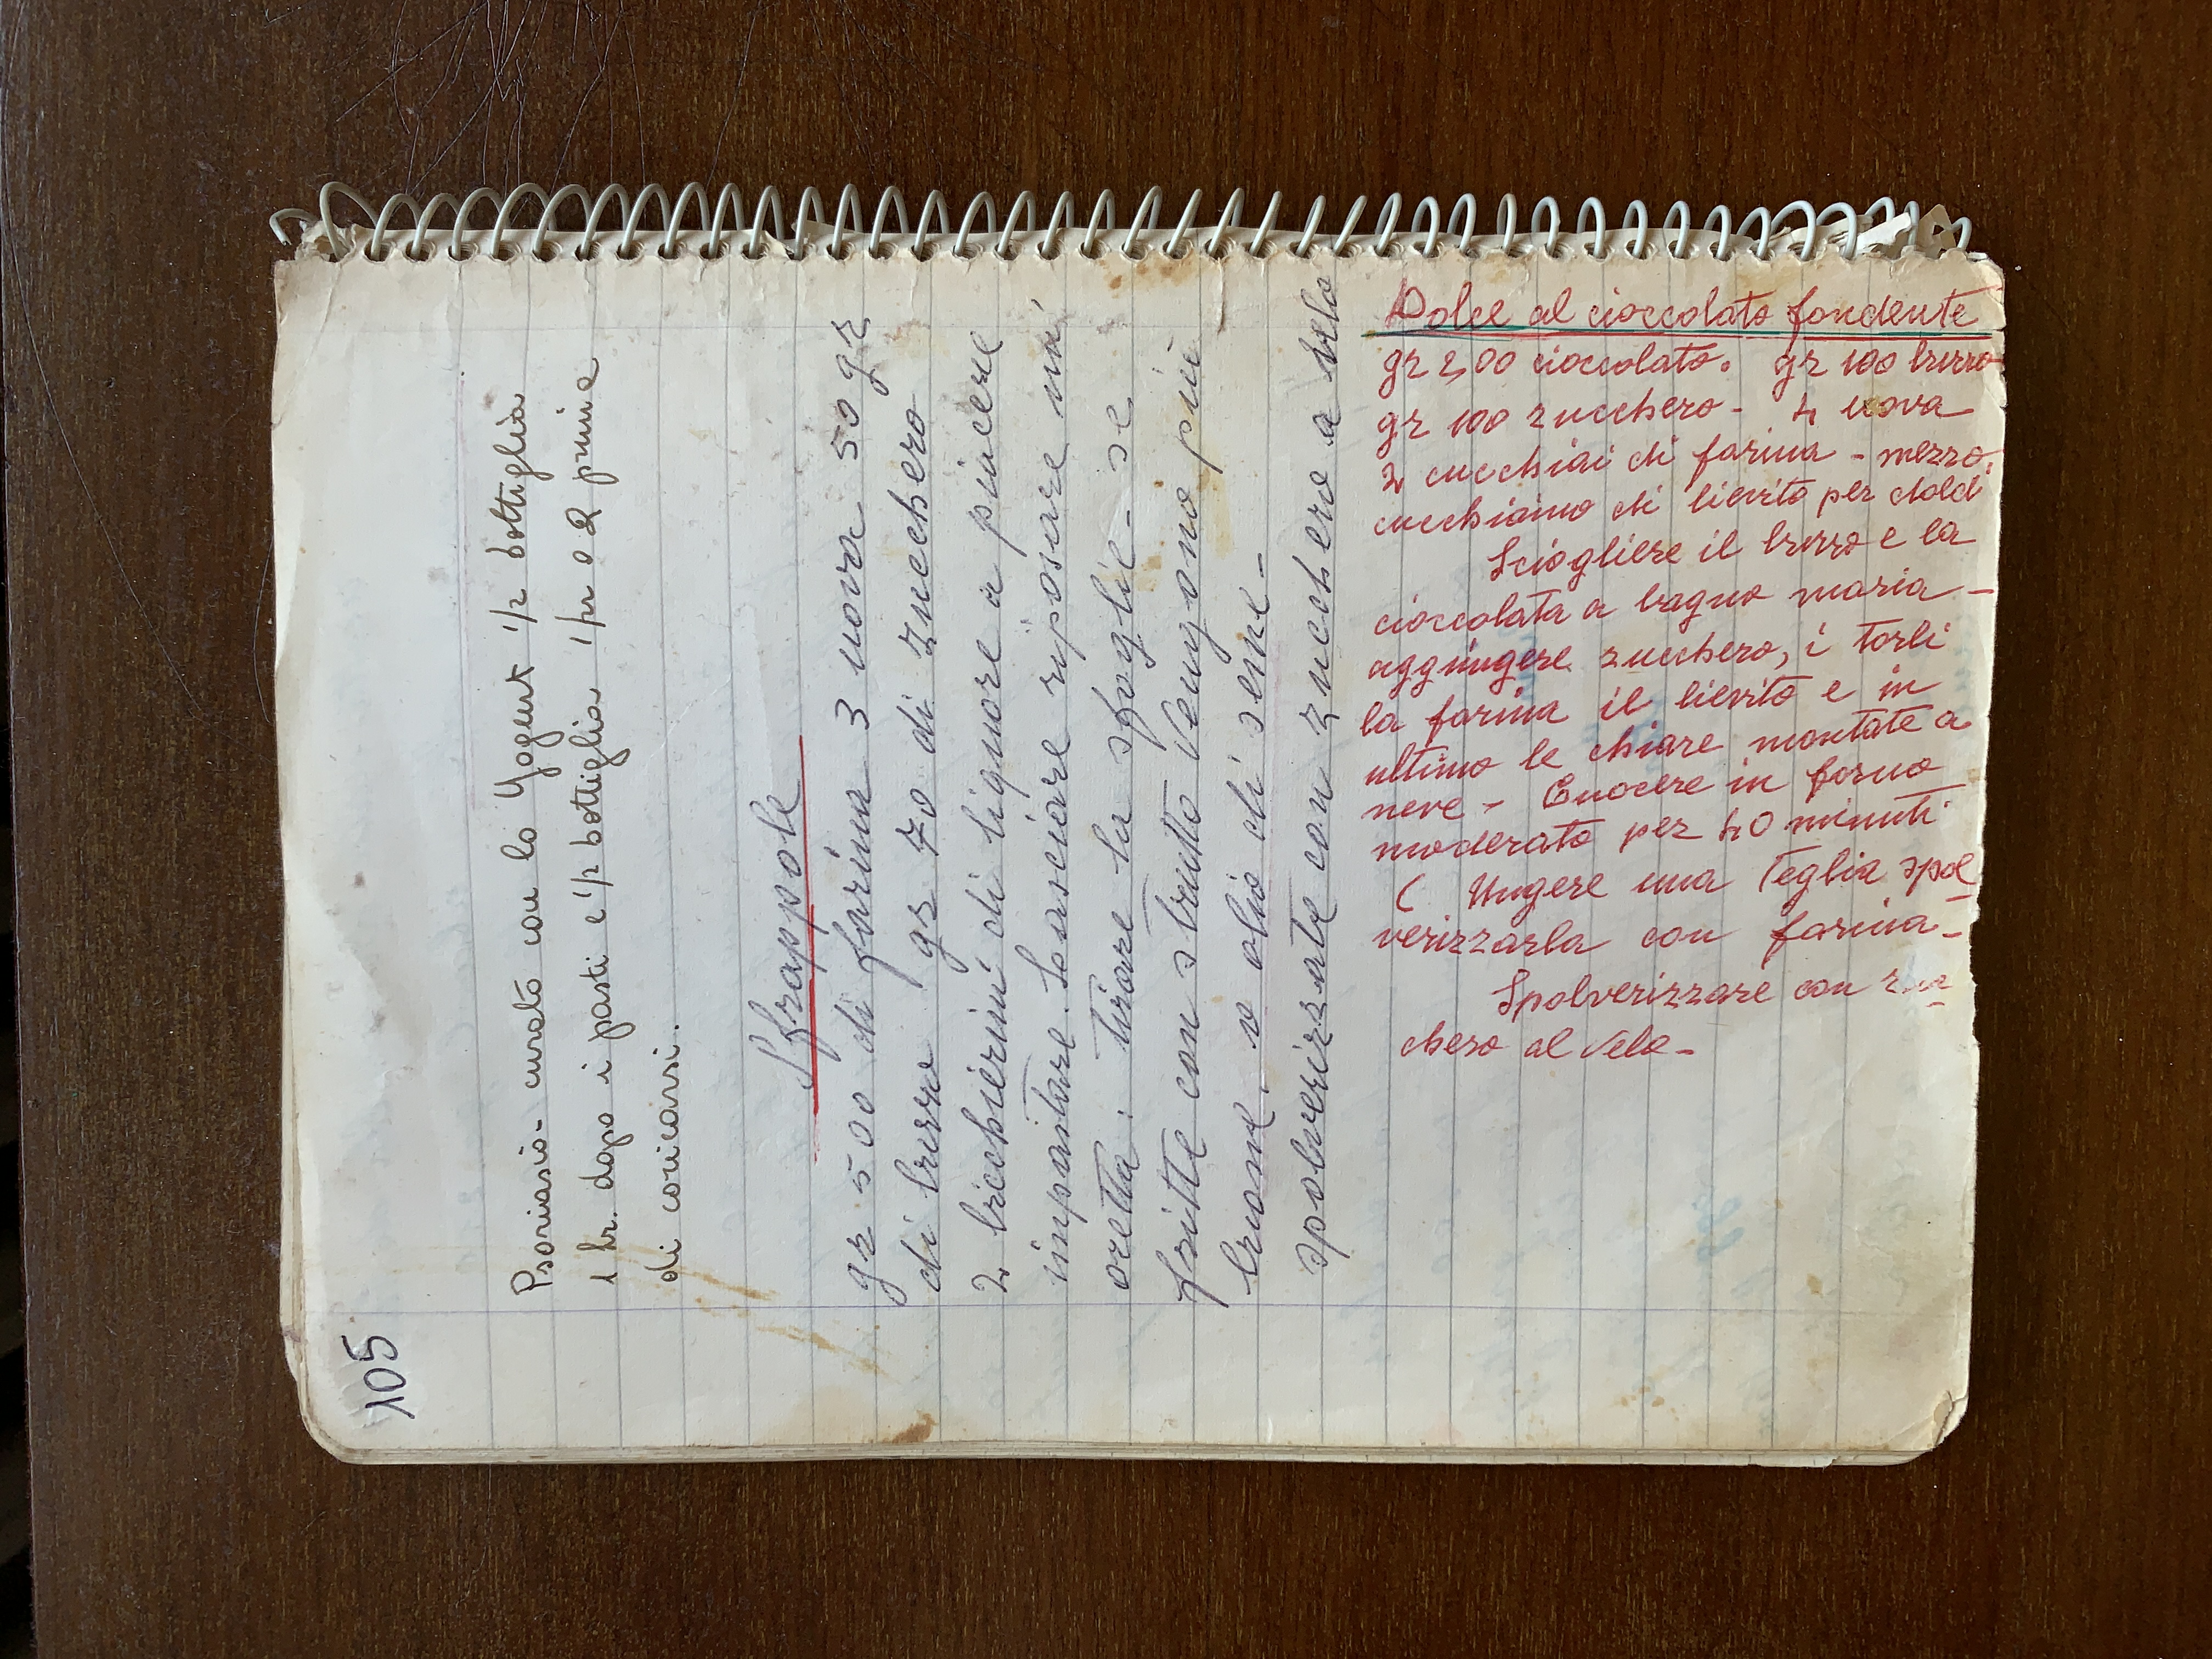 105
Psoriasi - curato con lo Yogurt 1/2 bottiglia
1 hr. dopo i pasti e 1/2 bottiglia 1 hr o 2 prima
di coricarsi.
Sfrappole
gr 500 di farina 3 uova 50 gr
di burro gr 70 di zucchero
2 bicchierini di liquore a piacere
impastare. Lasciare riposare un'
oretta: tirare la sfoglie - se
fritte con strutto vengono più
buone, o olio di seme -
spolverizzate con zucchero a velo
Dolce al cioccolato fondente
gr 200 cioccolato. gr 100 burro
gr 100 zucchero - 4 uova
2 cucchiai di farina - mezzo
cucchiaino di lievito per dolci:
Sciogliere il burro e la
cioccolata a bagno maria -
aggiungere zucchero, i torli
la farina il lievito e in
ultimo le chiare montate a
neve - Cuocere in forno
moderato per 40 minuti
( Ungere una teglia spol
verizzarla con farina -
Spolverizzare con zuc
chero al velo -